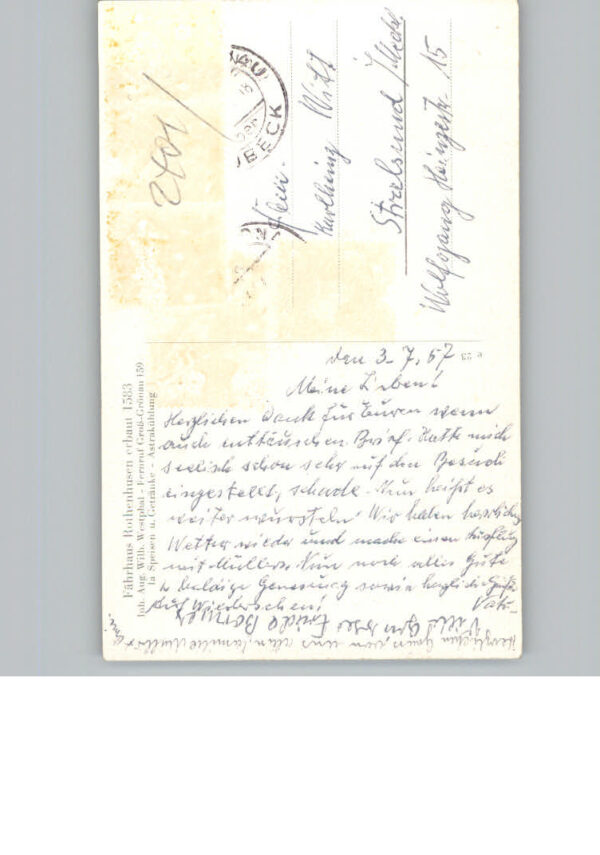 2401/
LÜBECK
Fam.
Karlheinz Witt
Stralsund /Meckl
Wolfgang Heinzestr. 15
e 23
Fährhaus Rothenhusen erbaut 1583
Inh. Aug. Wilh. Westphal - Fernruf Groß-Grönau 159
la Speisen u. Getränke - Astrakühlung
den 3. 7. 67
Meine Lieben!
Herzlichen Dank für Euren wenn
auch enttäuschen Brief. Hatte mich
seelisch schon sehr auf den Besuch
eingestellt, schade. Nun heißt es
weiter wursteln! Wir haben herrliches
Wetter wieder und machen einen Ausflug
mit Müllers. Nun noch alles Gute
u baldige Genesung sowie herzliche Grüße
Auf Wiedersehen! Vater
Viele Grüsse Frieda
Herzlichen von uns allen Familie Müller